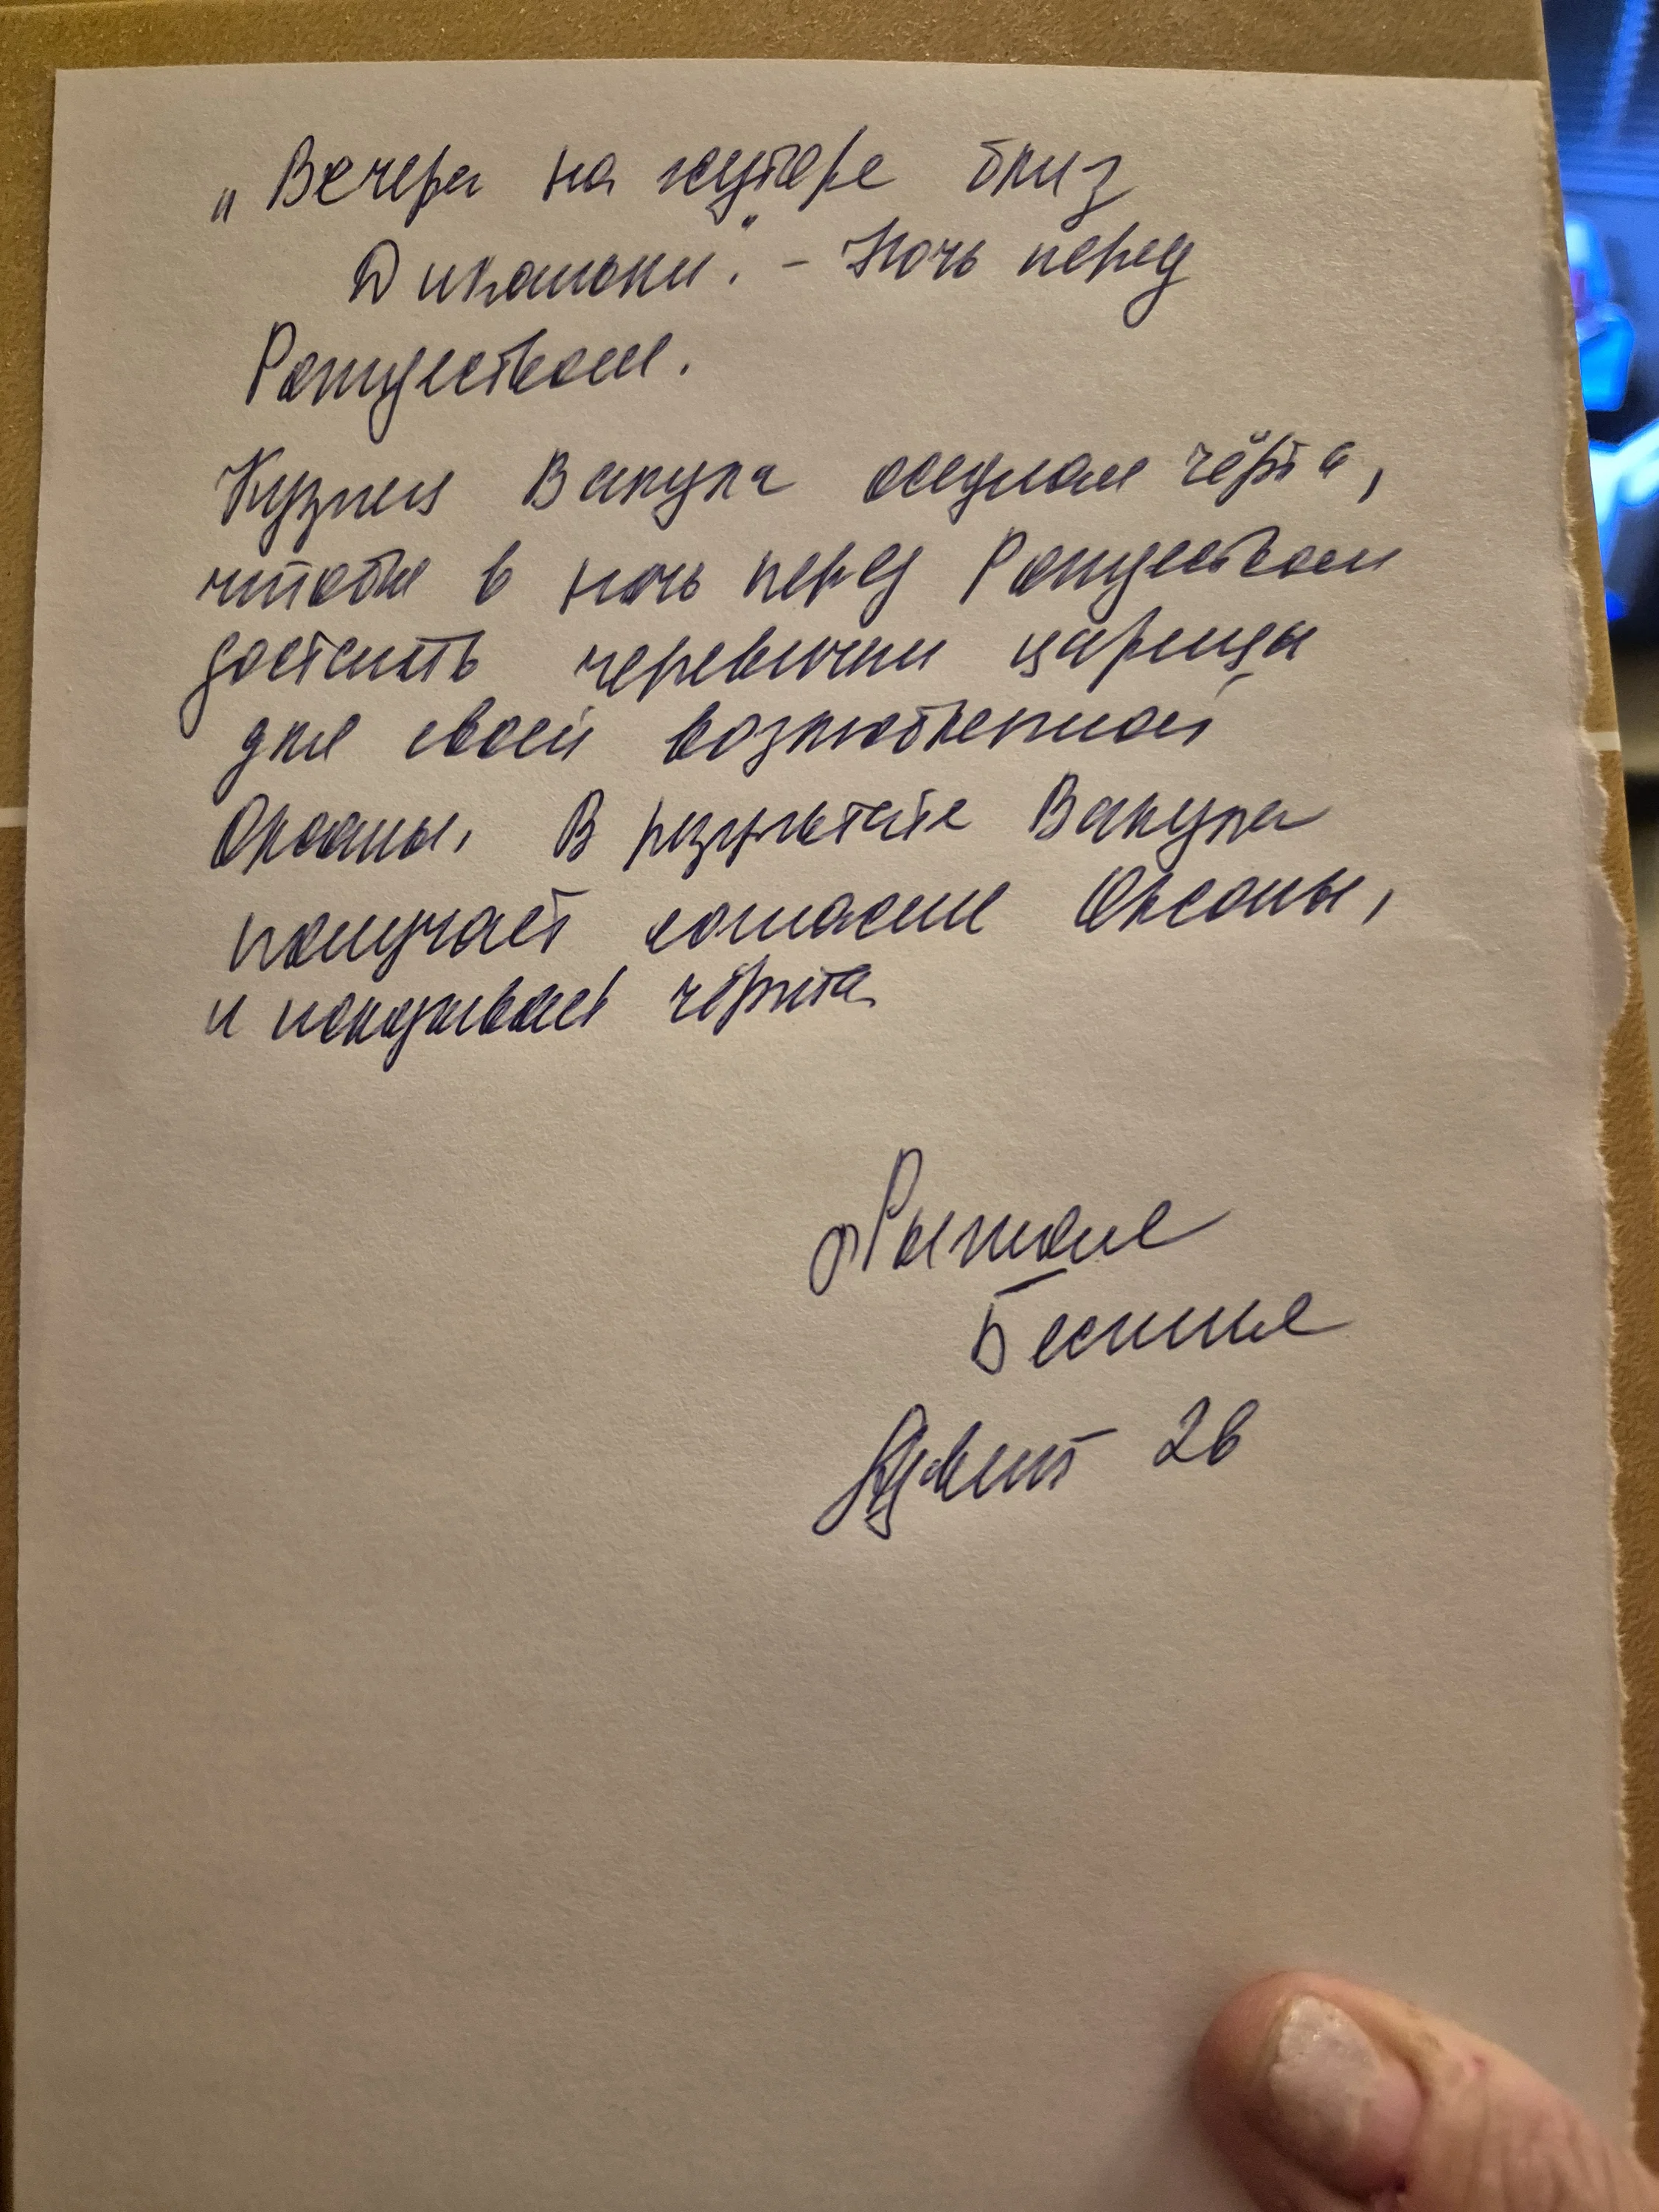 „Вечера на хуторе близ
Диканьки." - Ночь перед
Рождеством.
Кузнец Вакула оседлал чёрта,
чтобы в ночь перед Рождеством
достать черевички царицы
для своей возлюбленной
Оксаны. В результате Вакула
получает согласие Оксаны,
и наказывает чёрта
Рыжие
Бестии
Адвент 26